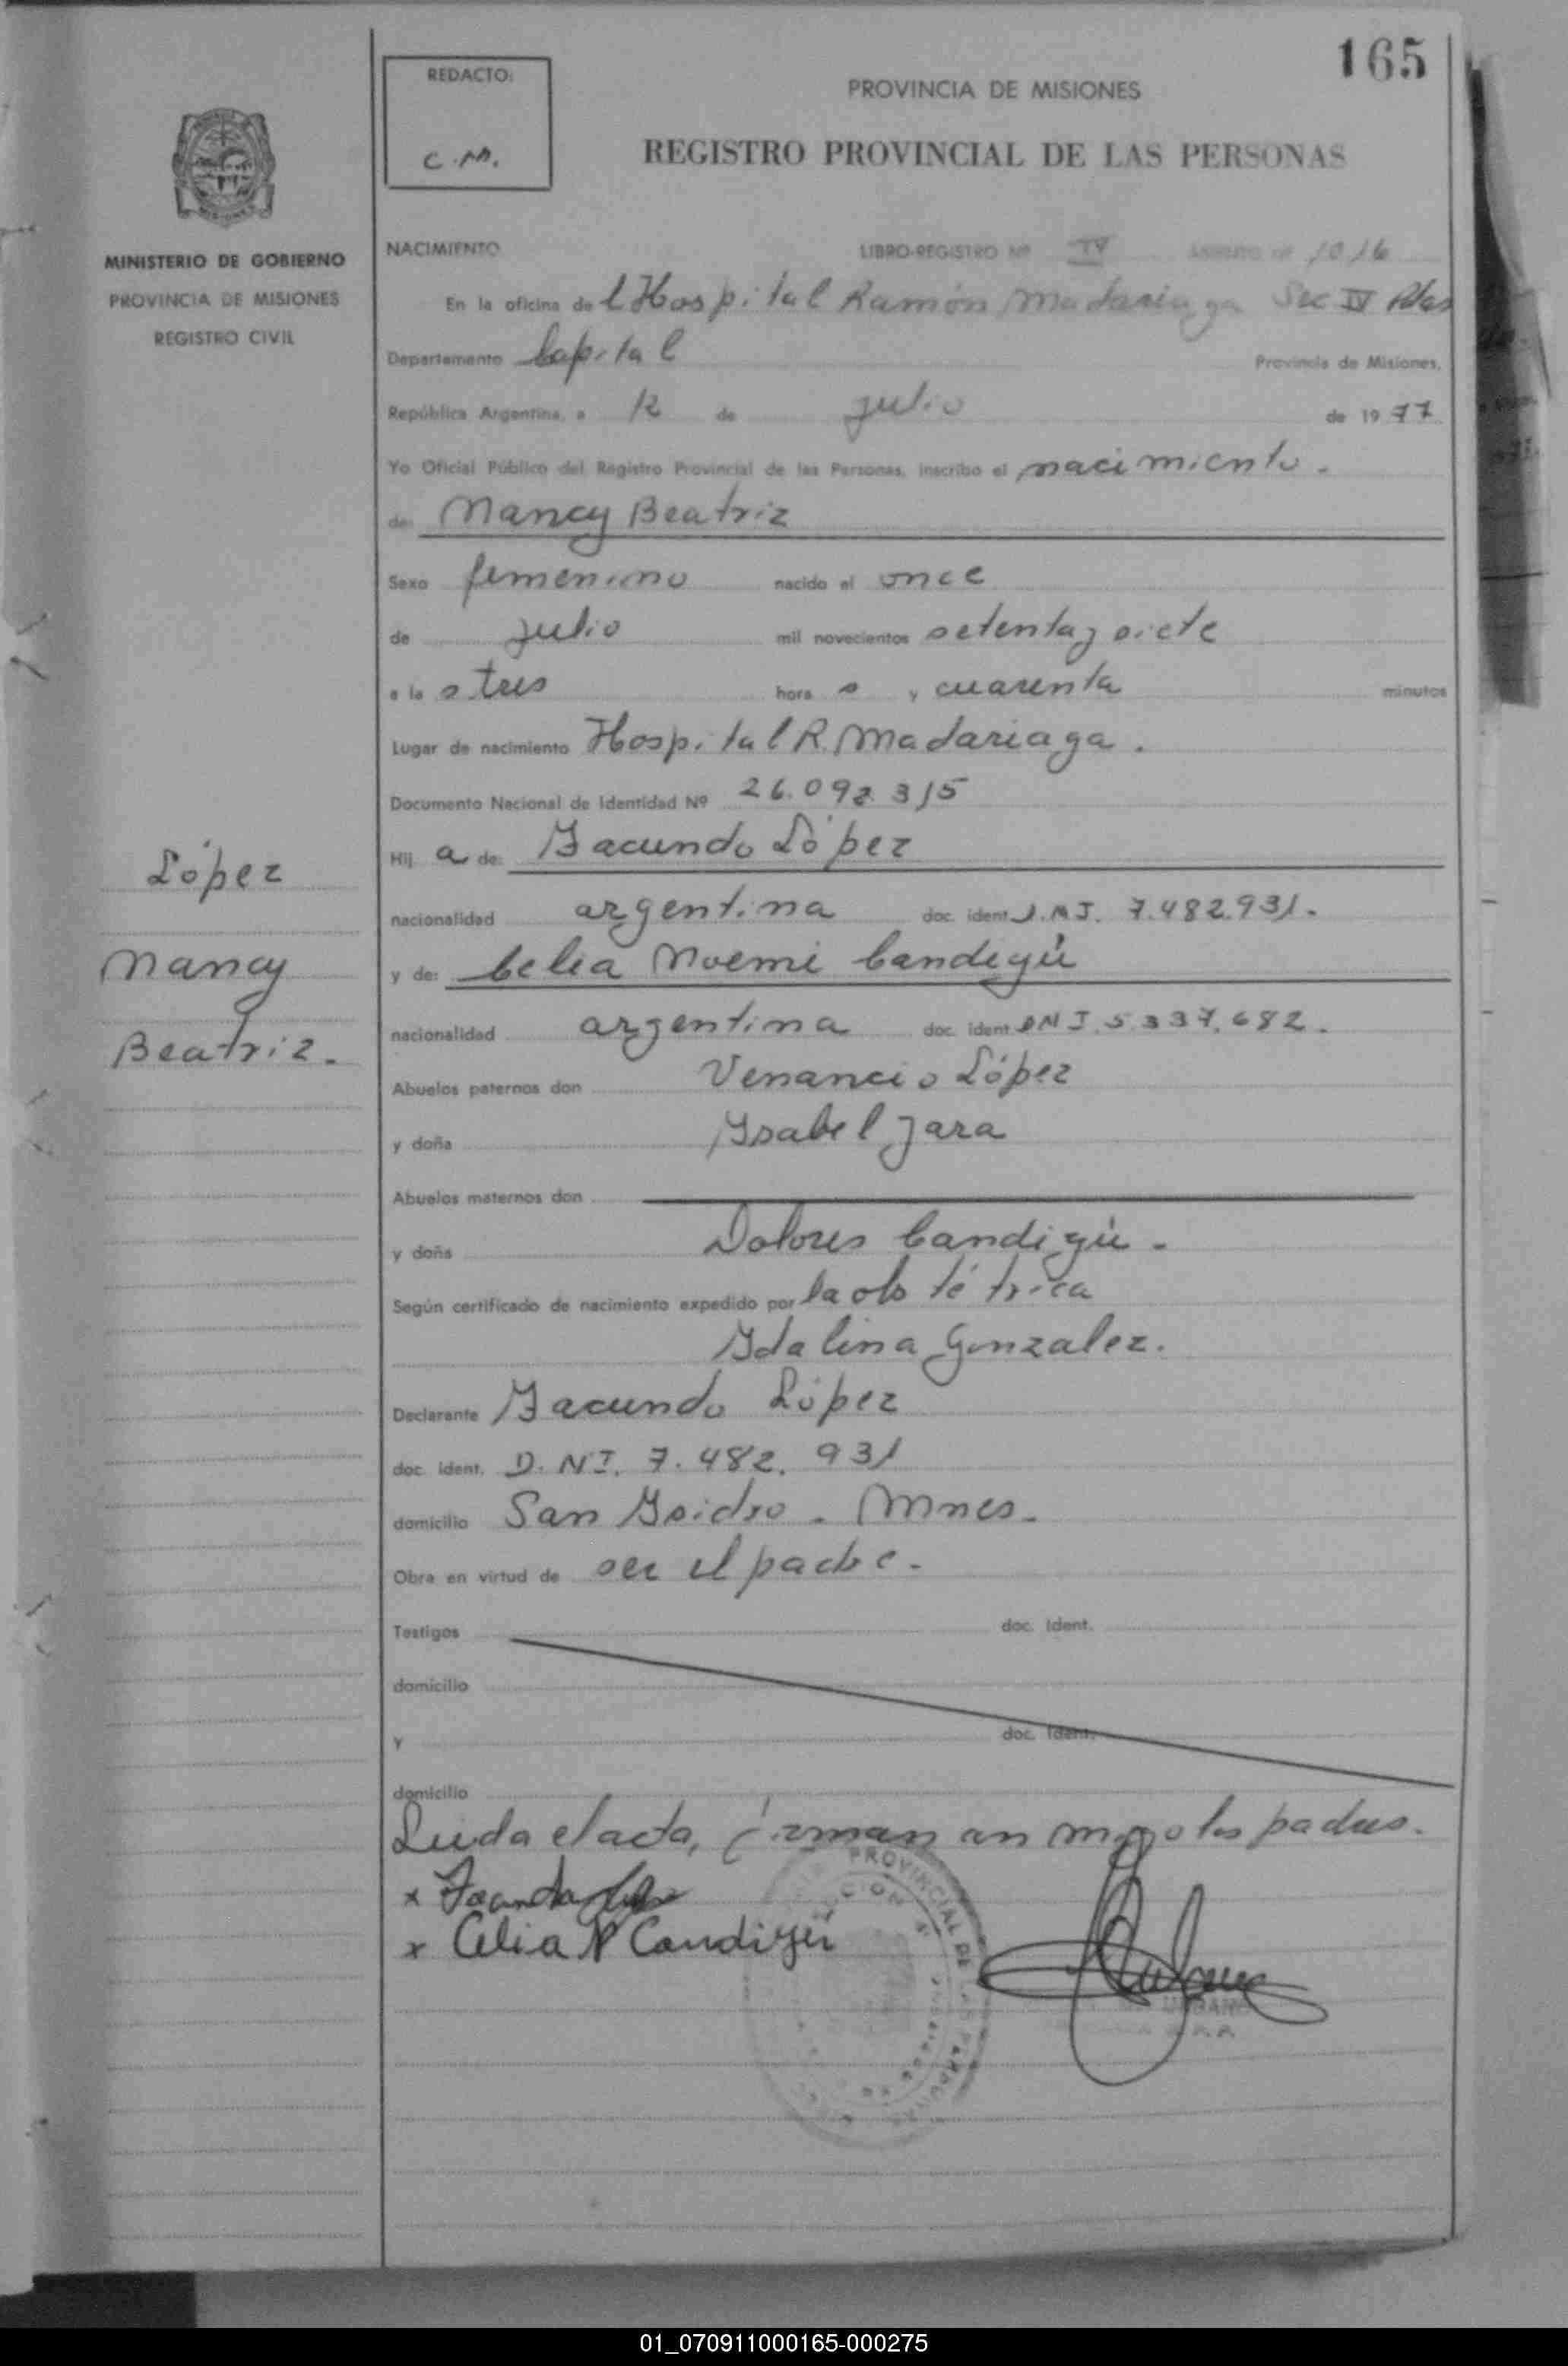 165
REDACTO:
C.M.
PROVINCIA DE MISIONES
REGISTRO PROVINCIAL DE LAS PERSONAS
MINISTERIO DE GOBIERNO
PROVINCIA DE MISIONES
REGISTRO CIVIL
NACIMIENTO LIBRO-REGISTRO Nº IV ASIENTO Nº 1016
En la oficina de l Hospital Ramón Madariaga Sec IV Pdas
Departamento Capital Provincia de Misiones,
República Argentina, a 12 de julio de 1977
Yo Oficial Público del Registro Provincial de las Personas, inscribo el nacimiento.
de: Nancy Beatriz
Sexo femenino nacido el once
de julio mil novecientos setenta y siete
a la s tres hora s y cuarenta minutos
Lugar de nacimiento Hospital R. Madariaga.
Documento Nacional de Identidad Nº 26.092.315
Hij a de: Facundo López
nacionalidad argentina doc. ident. D.N.I. 7.482.931.
y de: Celia Noemi Candigú
nacionalidad argentina doc. ident. DNI 5.337.682.
Abuelos paternos don Venancio López
y doña Ysabel Jara
Abuelos maternos don
y doña Dolores Candigú.
Según certificado de nacimiento expedido por la obtétrica
Ydalina Gonzalez.
Declarante Facundo López
doc. ident. D.NI. 7.482.931
domicilio San Ysidro. Mnes.
Obra en virtud de ser el padre.
Testigos doc. Ident.
domicilio
y doc. Ident.
domicilio
Leída el acta, firman con migo los padres.
x Facundo López
x Celia N Candigú
PROVINCIAL DE LAS PERSONAS
URBANO
López
Nancy
Beatriz.
01_070911000165-000275